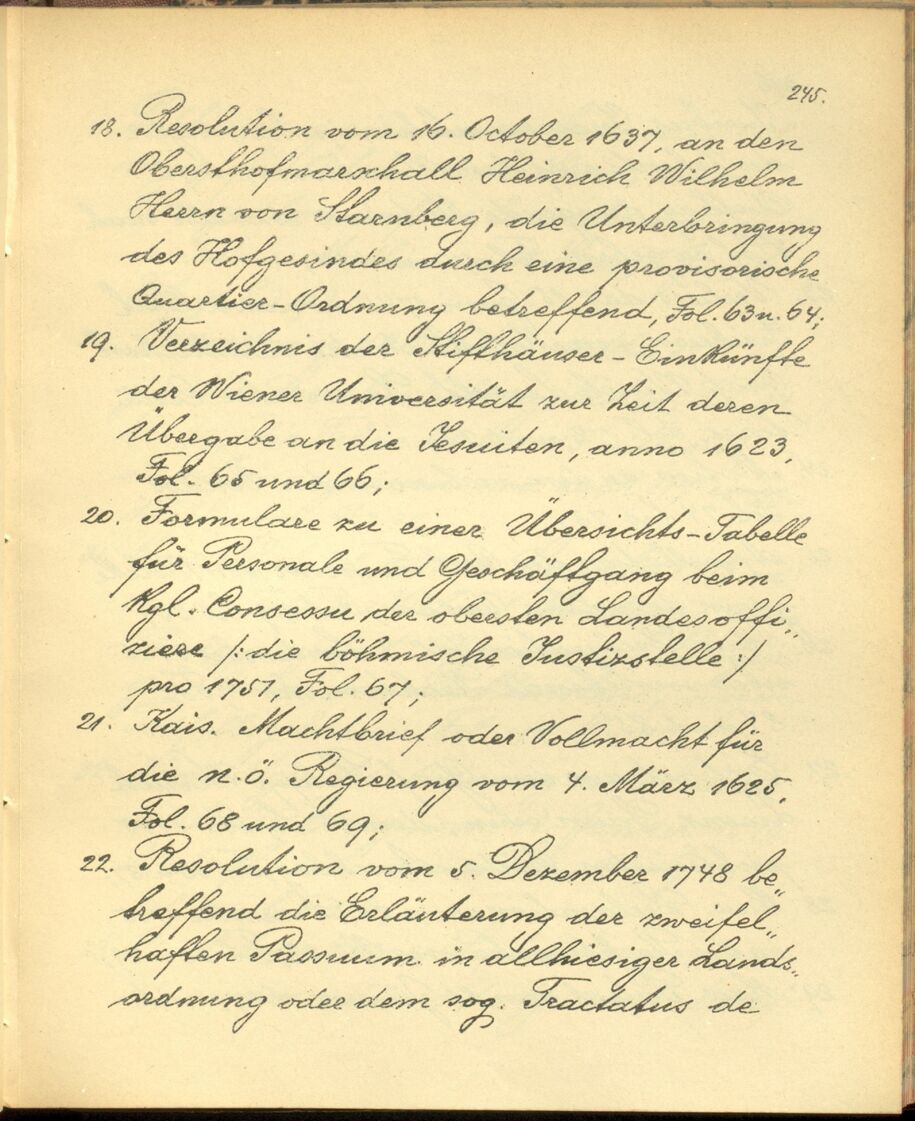 245.
18. Resolution vom 16. October 1637, an den
Obersthofmarschall Heinrich Wilhelm
Herrn von Starnberg, die Unterbringung
des Hofgesindes durch eine provisorische
Quartier-Ordnung betreffend, Fol. 63 u. 64;
19. Verzeichnis der Stiffhäuser-Einkünfte
der Wiener Universität zur Zeit deren
Übergabe an die Jesuiten, anno 1623,
Fol. 65 und 66;
20. Formulare zu einer Übersichts-Tabelle
für Personale und Geschäftgang beim
kgl. Consessu der obersten Landesoffi„
ziere /: die böhmische Justizstelle :/
pro 1751, Fol. 67;
21. Kais. Machtbrief oder Vollmacht für
die n. ö. Regierung vom 4. März 1625,
Fol. 68 und 69;
22. Resolution vom 5. Dezember 1748 be„
treffend die Erläuterung der zweifel„
haften Passuum in allhiesiger Lands„
ordnung oder dem sog. Tractatus de